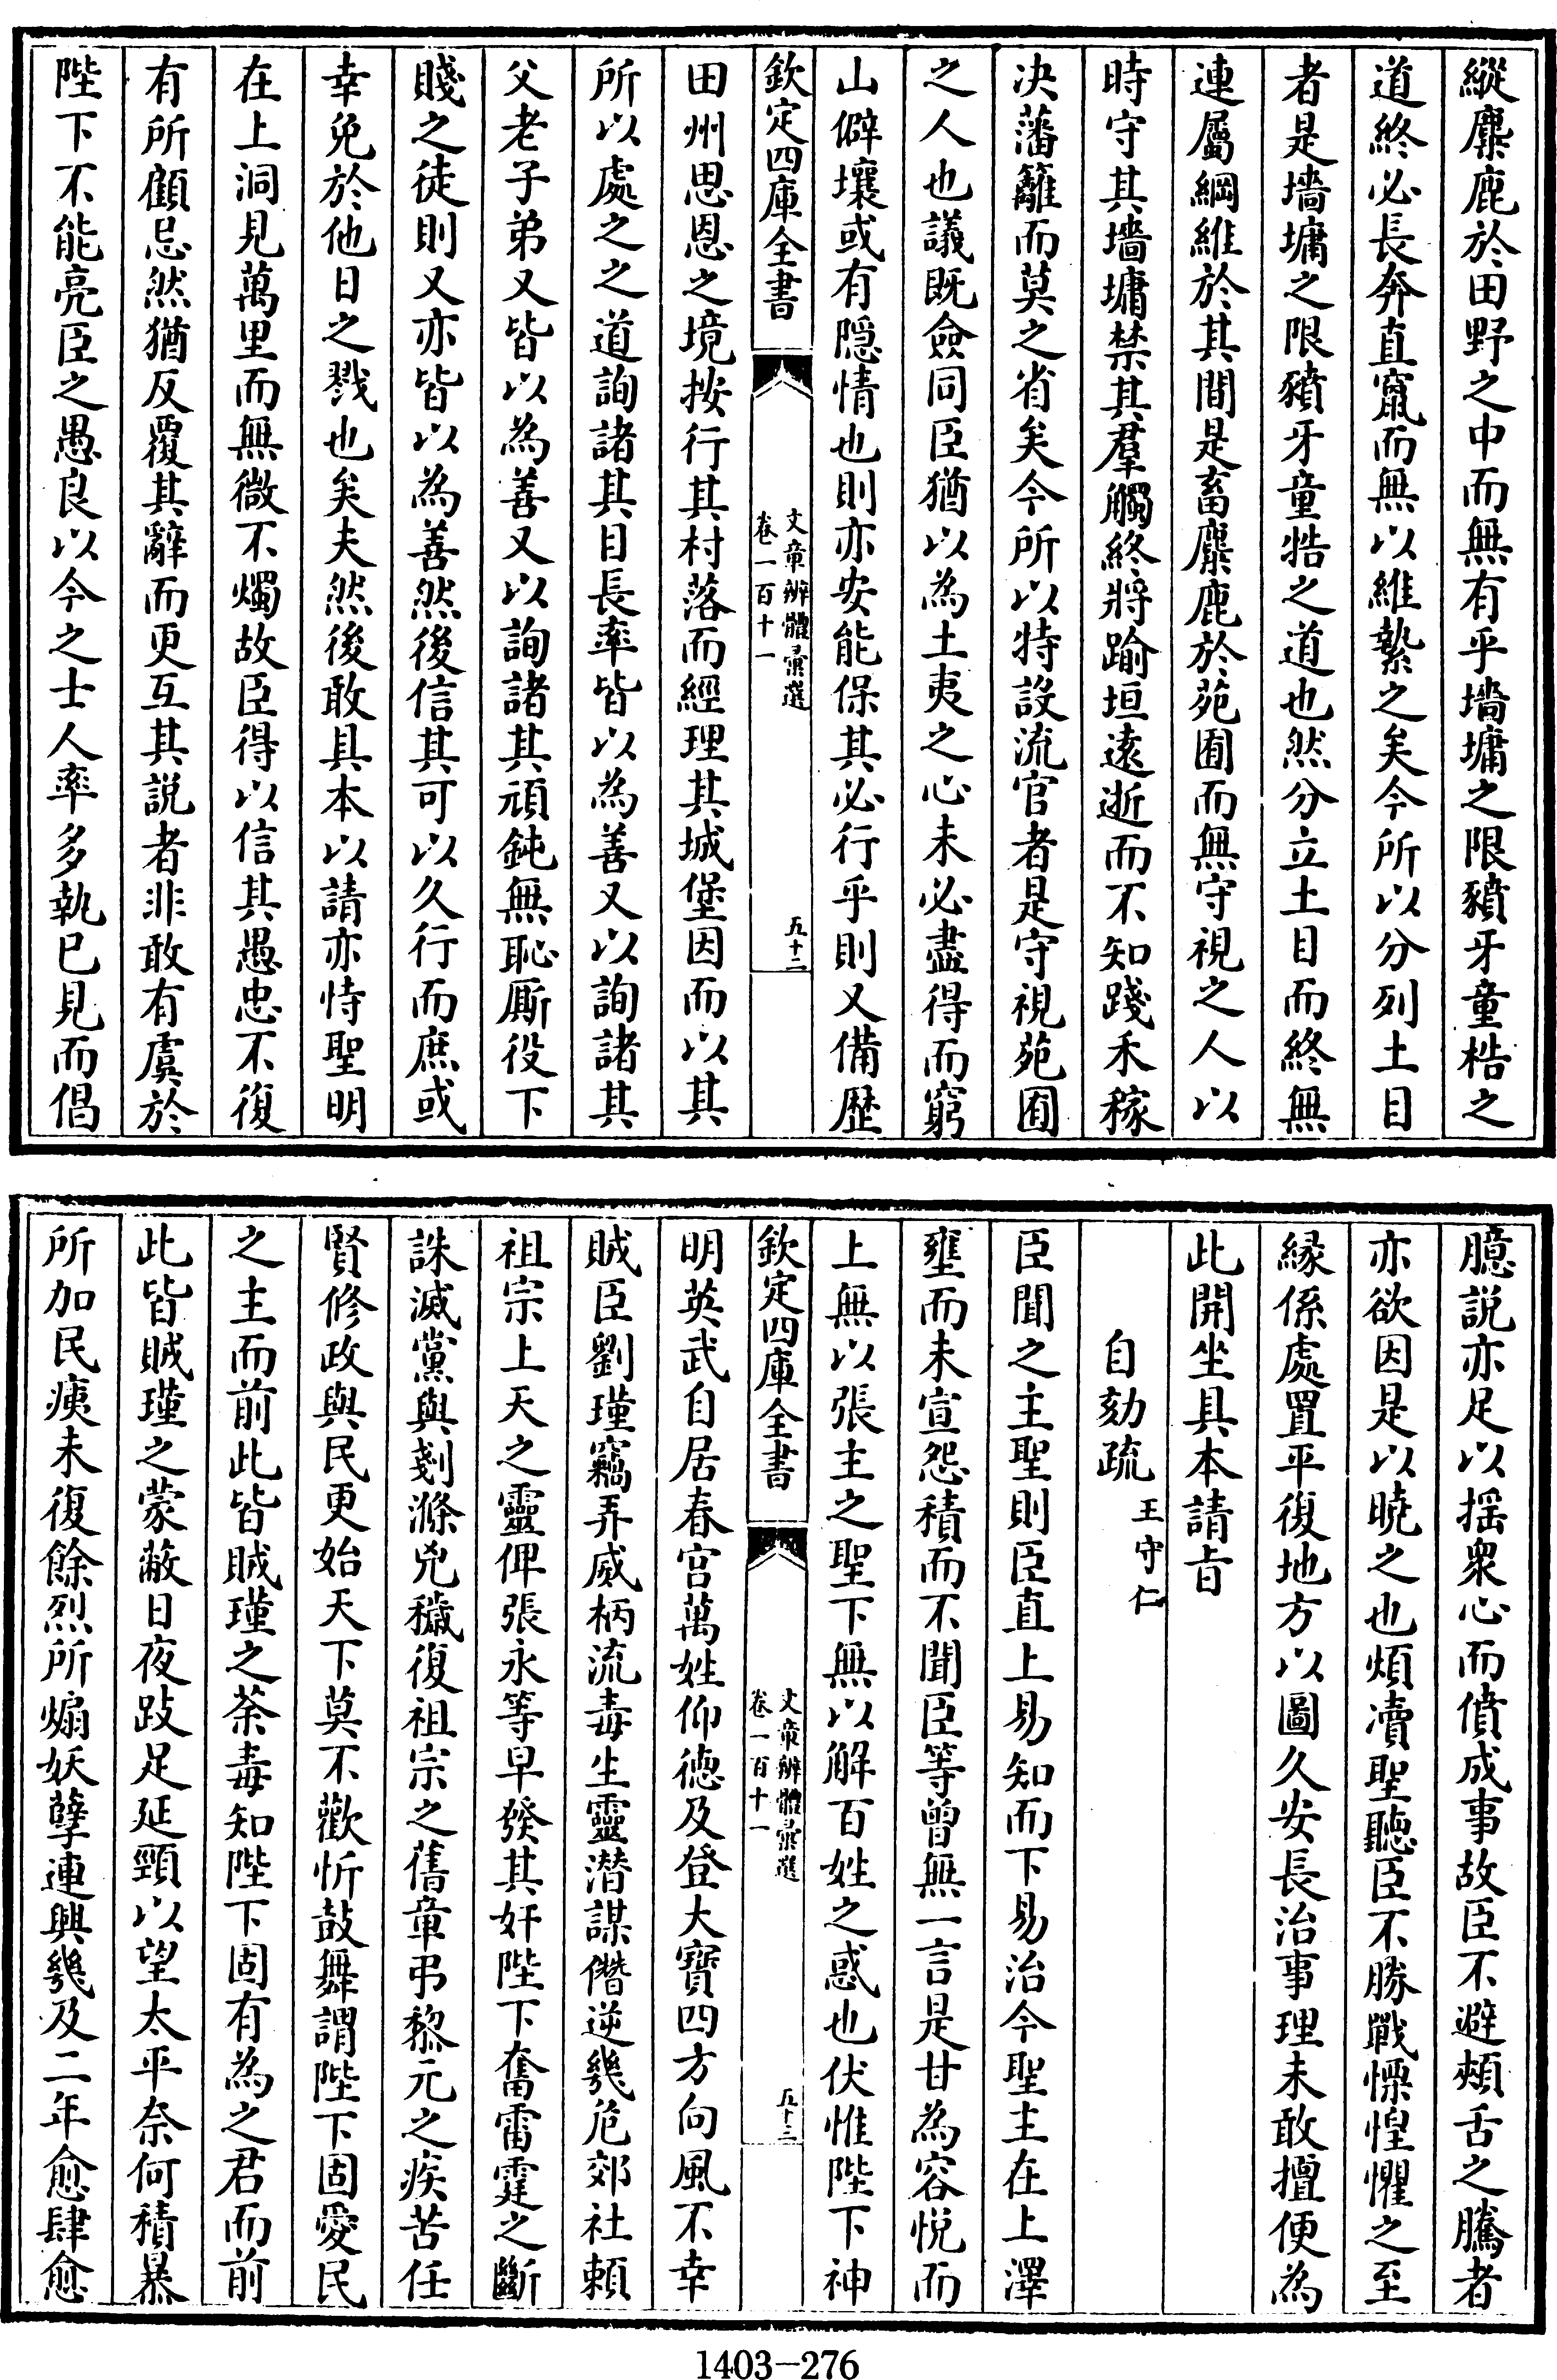 縱麋鹿於田野之中而無有乎墻墉之限豶牙童梏之
道終必長奔直竄而無以維縶之矣今所以分列土目
者是墻墉之限豶牙童牿之道也然分立土目而終無
連屬綱維於其間是畜麋鹿於苑囿而無守視之人以
時守其墻墉禁其羣觸終將踰垣遠逝而不知踐禾稼
决藩籬而莫之省矣今所以特設流官者是守視苑囿
之人也議既僉同臣猶以為土夷之心未必盡得而窮
山僻壤或有隠情也則亦安能保其必行乎則又備歴
欽定四庫全書
文章辨體彙選
卷一百十一
五十二
田州思恩之境按行其村落而經理其城堡因而以其
所以處之之道詢諸其目長率皆以為善又以詢諸其
父老子弟又皆以為善又以詢諸其頑鈍無恥厮役下
賤之徒則又亦皆以為善然後信其可以久行而庶或
幸免於他日之戮也矣夫然後敢具本以請亦恃聖明
在上洞見萬里而無微不燭故臣得以信其愚忠不復
有所顧忌然猶反覆其辭而更互其説者非敢有虞於
陛下不能亮臣之愚良以今之士人率多執已見而倡
臆説亦足以揺衆心而僨成事故臣不避頰舌之騰者
亦欲因是以曉之也煩瀆聖聽臣不勝戰慄惶懼之至
緣係處置平復地方以圖久安長治事理未敢擅便為
此開坐具本請㫖
自劾疏 王守仁
臣聞之主聖則臣直上易知而下易治今聖主在上澤
壅而未宣怨積而不聞臣等曾無一言是甘為容悦而
上無以張主之聖下無以解百姓之惑也伏惟陛下神
欽定四庫全書
文章辨體彙選
卷一百十一
五十三
明英武自居春宫萬姓仰德及登大寳四方向風不幸
賊臣劉瑾竊弄威柄流毒生靈潛謀僭逆幾危郊社頼
祖宗上天之靈俾張永等早發其奸陛下奮雷霆之斷
誅滅黨與剗滌兇穢復祖宗之舊章弔黎元之疾苦任
賢修政與民更始天下莫不歡忻鼓舞謂陛下固愛民
之主而前此皆賊瑾之荼毒知陛下固有為之君而前
此皆賊瑾之蒙蔽日夜跂足延頸以望太平奈何積暴
所加民痍未復餘烈所煽妖孽連興幾及二年愈肆愈
1403-276